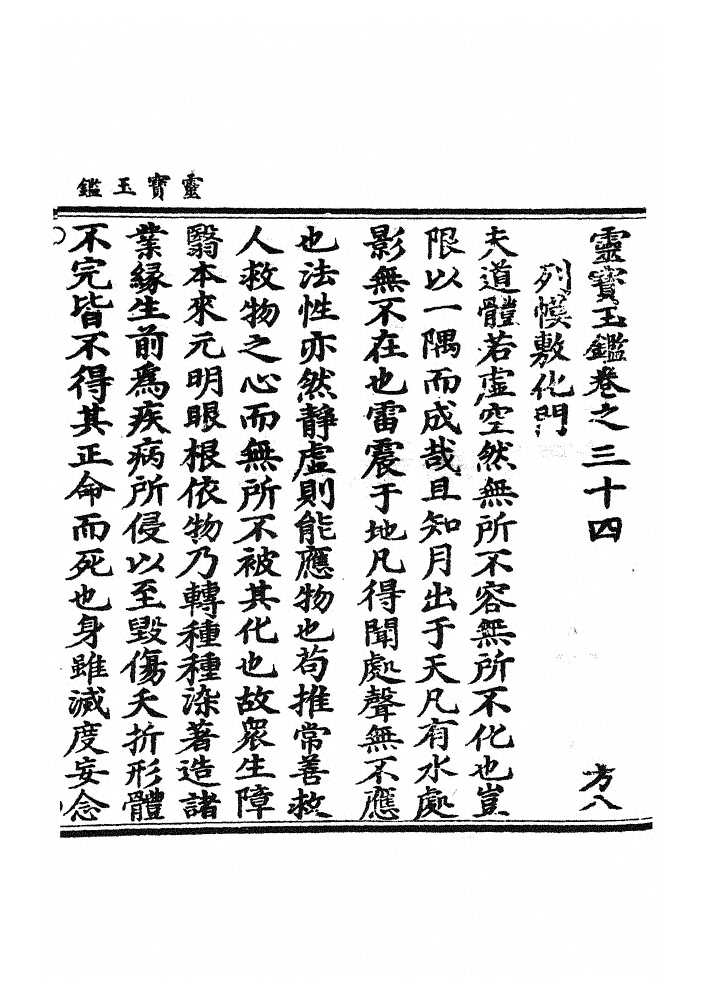 靈寶玉鑑
靈寶玉鑑卷之三十四 方八
列幙敷化門
夫道體若虛空然無所不容無所不化也豈
限以一隅而成哉且知月出于天凡有水處
影無不在也雷震于地凡得聞處聲無不應
也法性亦然靜虛則能應物也苟推常善救
人救物之心而無所不被其化也故衆生障
翳本來元明眼根依物乃轉種種染著造諸
業緣生前爲疾病所侵以至毀傷夭折形體
不完皆不得其正命而死也身雖滅度妄念